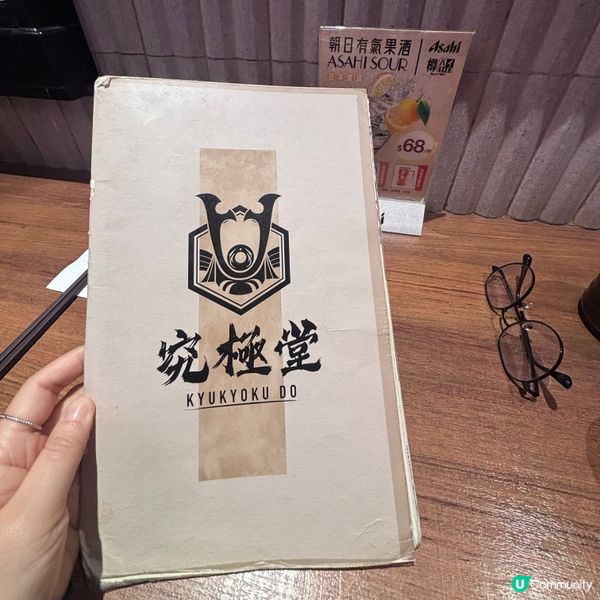 究極堂
KYUKYOKU DO
朝日有氣果酒
ASAHI SOUR
Asahi
$68/杯
U Community